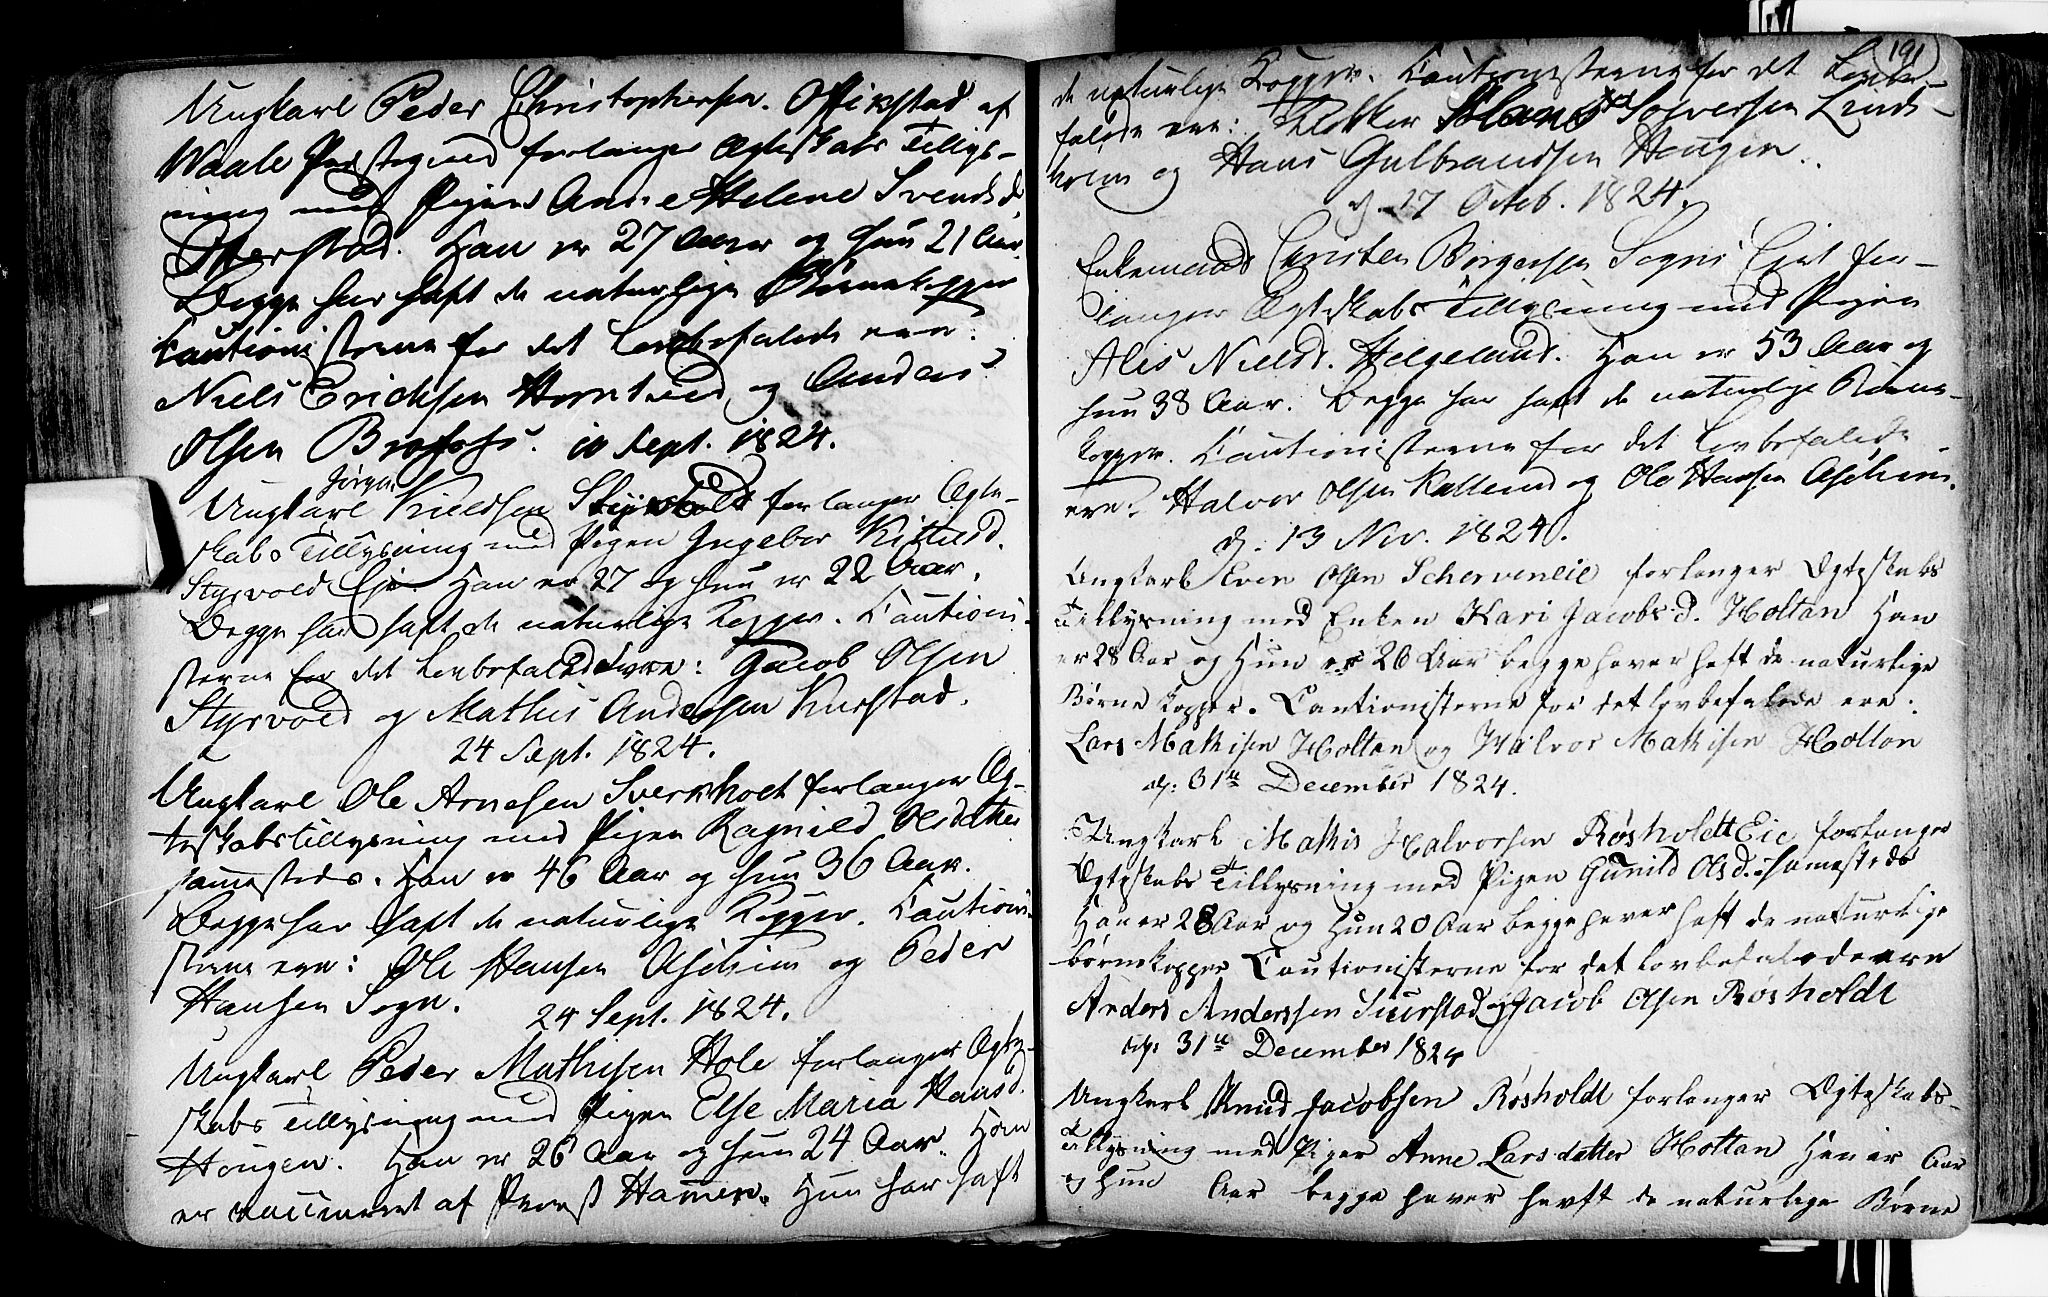 Ungkarl Peder Christophersen af
Waale Præstegield forlanger Ægteskabs Tillys-
ning med Pigen Anne Helene Svendsd.
Han er 27 Aar og hun 21 Aar.
Begge har haft de naturlige Børnekopper
Cautionisterne for det Lovbefalede ere:
Niels Erichsen og Anders
Olsen 10 Sept. 1824.
Jørgen
Ungkarl Knudsen forlanger Ægte-
skabs Tillysning med Pigen Ingebor
Styrvold Eje Han er 27 og hun er 22 Aar.
Begge har haft de naturlige Kopper. Cautioni-
sterne for det Lovbefalede ere: Jacob Olsen
Styrvold og Mathis Andersen
24 Sept. 1824.
Ungkarl Ole Arnesen Sverkholt forlanger Æg-
teskabstillysning med Pigen Ragnild Olsdatter
sammesteds. Han er 46 Aar og hun 36 Aar.
Begge har haft de naturlige Kopper. Cautioni-
sterne ere: Ole Hansen Aschim og Peder
Hansen Sogn.
24 Sept. 1824.
Ungkarl Peder Mathisen Hole forlanger Ægte-
skabs Tillysning med Pigen Else Maria Hansd.
Hougen. Han er 26 Aar og hun 24 Aar. Han
er vaccineret af Provst Hammer. Hun har haft
191
de naturlige Kopper. Cautionisterne for det Lovbe-
falede ere: Klokker Hans Solversen Linds-
og Hans Gulbrandsen Hougen.
d. 17 Octob. 1824.
Enkemand Christen Børgersen Sogns Ejet for-
langer Ægteskabs Tillysning med Pigen
Alis Nielsd. Helgeland. Han er 53 Aar og
hun 38 Aar. Begge har haft de naturlige Børne-
kopper. Cautionisterne for det Lovbefalede
ere: Halvor Olsen og Ole Hansen Aschim.
d. 13 Nov. 1824.
Ungkarl Even Olsen Scherveneie forlanger Ægteskabs
Tillysning med Enken Kari Jacobsd. Holtan Han
er 28 Aar og Hun er 26 Aar begge haver haft de naturlige
Børne kopper. Cautionisterne for det lovbefalede ere.
Lars Mathisen Holtan og Halvor Mathisen Holton
d: 31te December 1824.
Ungkarl Mathis Halvorsen Røsholdt Eie forlanger
Ægteskabs Tillysning med Pigen Gunild Olsd. samesteds
Han er 28 Aar og Hun 20 Aar begge haver haft de naturlige
børnekopper Cautionisterne for det lovbefalede ere
Anders Anderssen og Jacob Olsen Røsholdt
d: 31te December 1824
Ungkarl Knud Jacobsen Røsholdt forlanger Ægteskabs-
Tillysning med Pigen Anne Larsdatter Holtan Han er Aar
og hun Aar begge haver havft de naturlige Børne